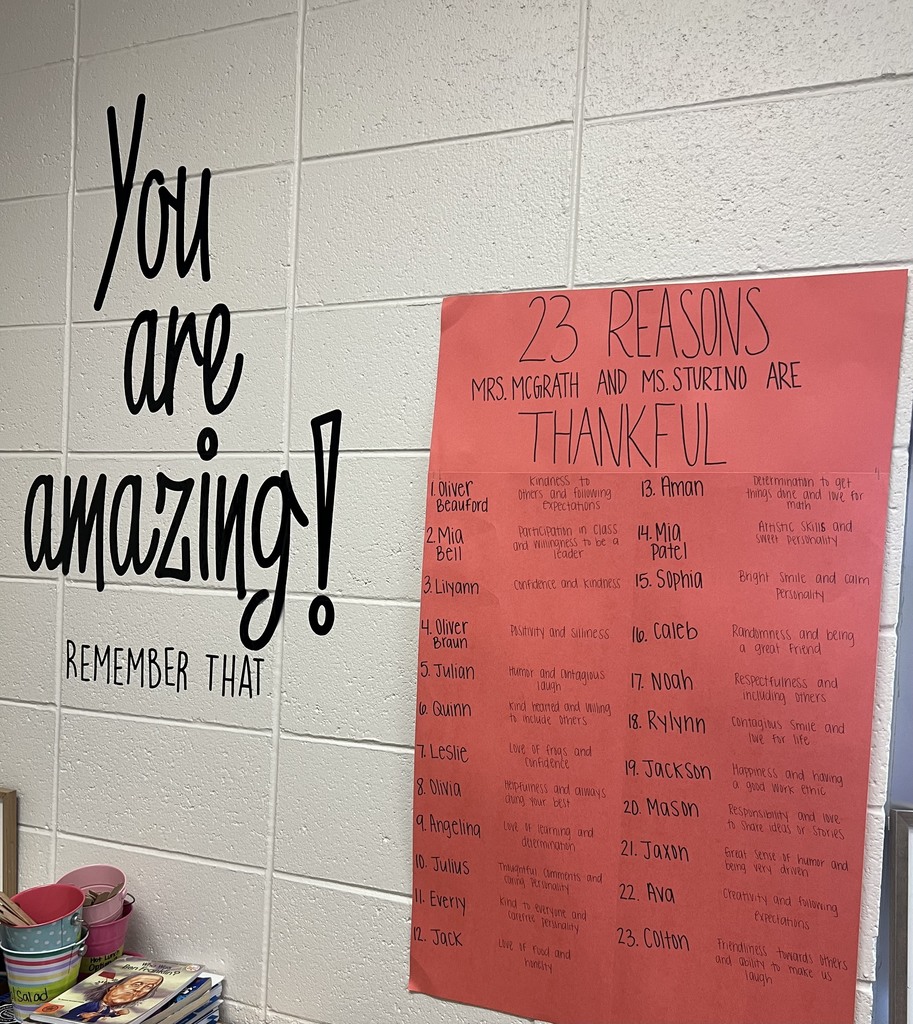 You
are
amazing!
REMEMBER THAT
23 REASONS
MRS. MCGRATH AND MS. STURINO ARE
THANKFUL
1. Oliver Beauford
Kindness to
others and following
expectations
2. Mia Bell
Participation in class
and willingness to be a
leader
3. Lilyann
Confidence and kindness
4. Oliver Braun
Positivity and silliness
5. Julian
Humor and contagious
laugh
6. Quinn
Kind hearted and willing
to include others
7. Leslie
Love of frogs and
confidence
8. Olivia
Helpfulness and always
doing your best
9. Angelina
Love of learning and
determination
10. Julius
Thoughtful comments and
caring personality
11. Everly
Kind to everyone and
carefree personality
12. Jack
Love of food and
honesty
13. Aman
Determination to get
things done and love for
math
14. Mia Patel
Artistic skills and
sweet personality
15. Sophia
Bright smile and calm
personality
16. Caleb
Randomness and being
a great friend
17. Noah
Respectfulness and
including others
18. Rylynn
Contagious smile and
love for life
19. Jackson
Happiness and having
a good work ethic
20. Mason
Responsibility and love
to share ideas or stories
21. Jaxon
Great sense of humor and
being very driven
22. Ava
Creativity and following
expectations
23. Colton
Friendliness towards others
and ability to make us
laugh
Hot Lunch
Salad
Who Was
Ben Franklin?